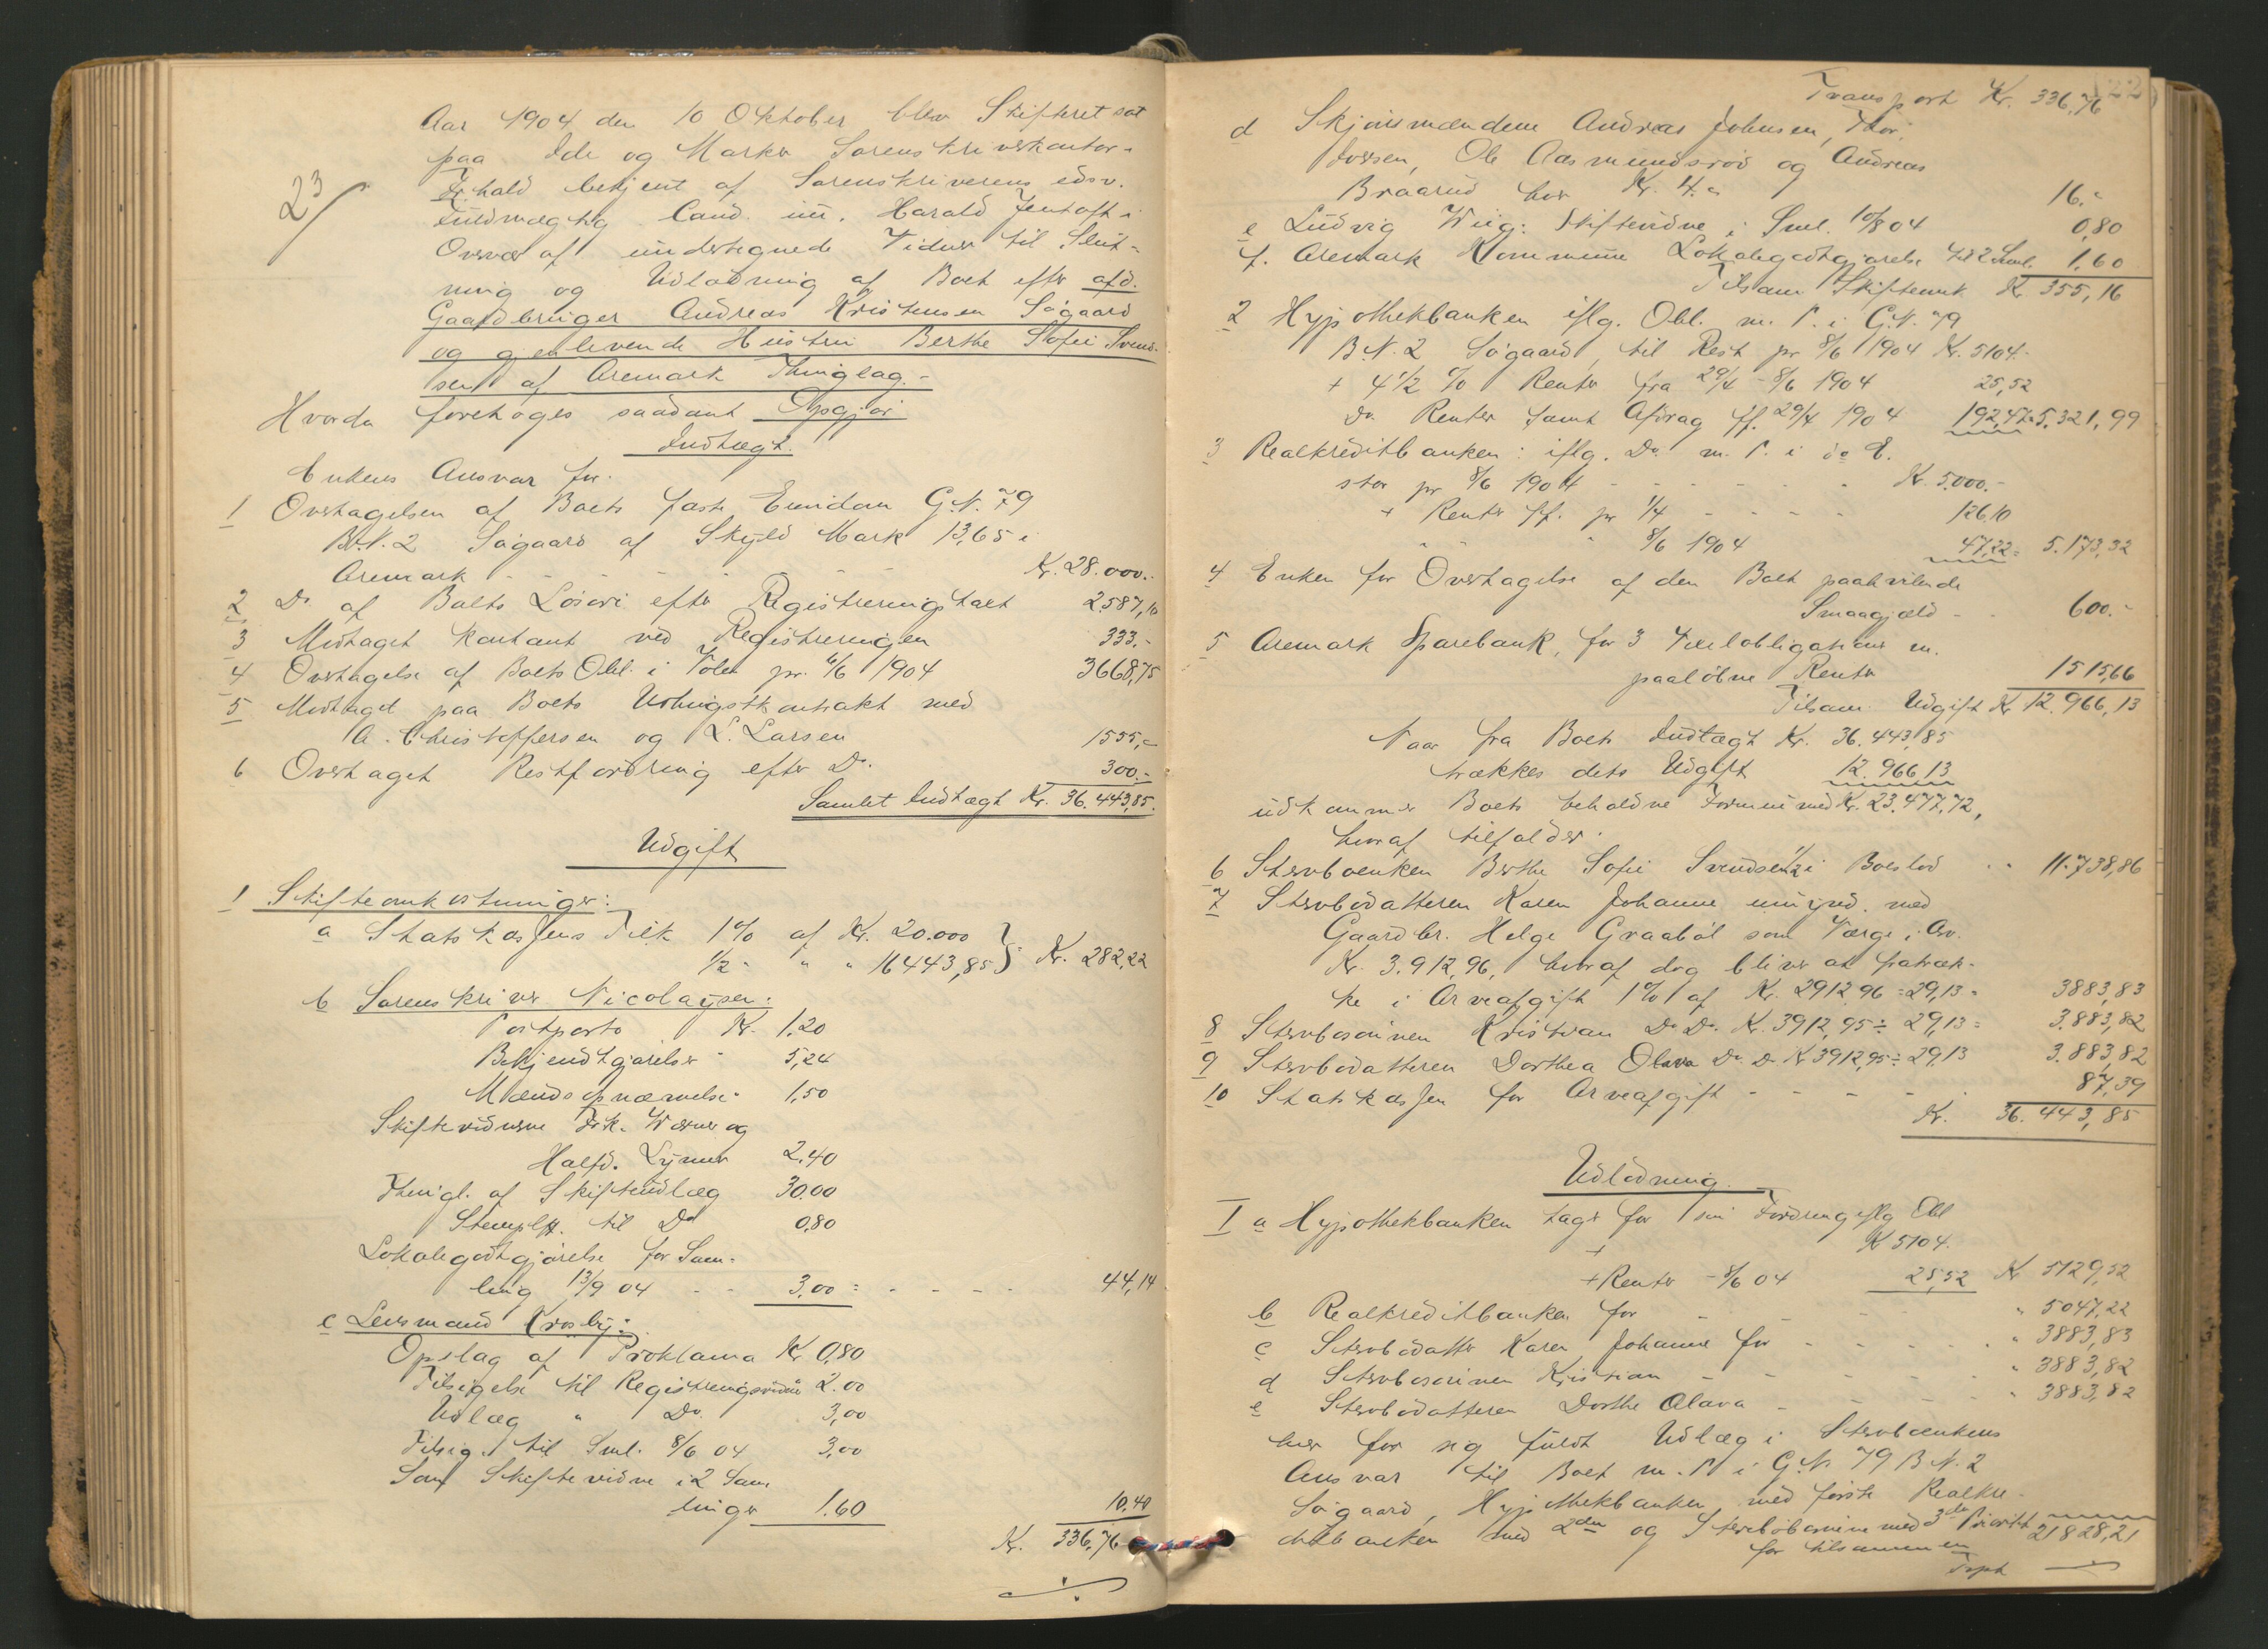 23
Aar 1904 den 10 Oktober blev Skifteret sat
paa Idde og Marker Sorenskriverkontor
Fr.hald betjent af Sorenskriverens edsv.
Fuldmægtig Cand. jur. Harald Jentoft i
Overvær af undertegnede Vidner til Slut-
ning og Udlodning af Boet efter afd.
Gaardbruger Andreas Kristensen Søgaard
og gjenlevende Hustru Berthe Sofie Svend-
sen af Aremark Thinglag.-
Hvorda foretoges saadant Opgjør
Indtægt.
Enkens Ansvar for.
1 Overtagelsen af Boets faste Eiendom G.N. 79
B.N. 2 Søgaard af Skyld Mark 13,65 i
Aremark - - - - - Kr. 28.000.-
2 Do af Boets Løsøre efter Registreringstaxt 2587,10
3 Modtaget kontant ved Registreringen 333.-
4 Overtagelse af Boets Obl. i Tolen pr. 8/6 1904 3668,75
5 Modtaget paa Boets Udhugstkontrakt med
A. Christoffersen og L. Larsen 1555,-
6 Overtaget Restfordring efter Do. 300.-
Samlet Indtægt Kr. 36.443,85.
Udgift
1 Skifteomkostninger:
a Statskassens Tilk 1% af Kr. 20.000
1/2 - " " 16443,85 } Kr. 282,22
b Sorenskriver Nicolaysen.
Postporto Kr. 1,20
Bekjendtgjørelser - 5,24
Mændsopnævnelse - 1,50
Skiftevidnerne Frk. Werner og
Halfd. Lymer 2,40
Thingl. af Skifteudlæg 30.00
Stemplet til Do 0,80
Lokalegodtgjørelse for Sam-
ling 13/9 04 - - 3,00 = - - - - 44,14
c Lensmand Krosby:
Opslag af Proklama Kr 0,80
Tilsigelse til Registreringsvidne 2.00
Udlæg " Do. 3,00
Tilsig. til Saml. 8/6 04 3,00
Som Skiftevidne i 2 Sam
linger 1.60 10,40
Kr. 336,76
·/·
22
Transport Kr. 336,76
d Skjønsmændene Andreas Johnsen, Thor.
Iversen, Ole Aasmundsrød og Andreas
Braarud hver Kr. 4.- 16.-
e Ludvig Wiig: Skiftevidne i Saml. 10/8 04 0,80
f. Aremark Kommune Lokalegodtgjørelse til 2 Saml. 1,60
Tilsam Skifteomk Kr 355,16
2 Hypothekbanken iflg. Obl. m. P. i G.N. 79
B.N. 2 Søgaard, til Rest pr 8/6 1904 Kr. 5104.-
+ 4 1/2 % Renter fra 29/4 - 8/6 1904 25,52
Do Renter samt Afdrag ff. 29/4 1904 192,47 = 5.321,99
3 Realkreditbanken: iflg. Do. m. P. i do E.
stor pr 8/6 1904 - - - - - Kr. 5.000.-
+ Renter ff. pr 1/4 - - - - 126.10
" - " 8/6 1904 47.22 = 5.173,32
4 Enken for Overtagelse af den Boet paahvilende
Smaagjæld - - 600.-
5 Aremark Sparebank, for 3 Vexelobligationer m.
paaløbne Renter 1515,66
Tilsam. Udgift Kr 12.966,13
Naar fra Boets Indtægt Kr. 36.443,85
trækkes dets Udgift 12.966,13
udkommer Boets beholdne Formue med Kr. 23.477,72,
hvoraf tilfalder.
6 Stervboenken Berthe Sofie Svendsen 1/2 i Boeslod - - 11.738,86
7 Stervbodatteren Karen Johanne umynd. med
Gaardbr. Helge Graabøl som Værge i Arv.
Kr. 3.912,96, hvoraf dog bliver at fratræk-
ke i Arveafgift 1% af Kr. 2912,96 = 29,13 = 3883,83
8 Stervbosønnen Kristian Do Do. Kr. 3912,95 ÷ 29,13 = 3.883,82
9 Stervbodatteren Dorthea Olava Do Do Kr 3912,95 ÷ 29,13 3.883,82
10 Statskassen for Arveafgift - - - - - 87,39
Kr. 36.443,85
Udlodning.
I a Hypothekbanken tager for sin Fordring iflg Obl
Kr 5104.
+ Renter - 8/6 04 25,52 Kr 5129,52
b Realkreditbanken for - - - " 5047,22
c Stervbodatter Karen Johanne for - - - - " 3883,83
d Stervbosønnen Kristian - - - - " 3883,82
e Stervbodatteren Dorthe Olava - - - " 3883,82
hver for sig fuldt Udlæg i Stervboenkens
Ansvar til Boet m. P. i G.N. 79 B.N. 2
Søgaard, Hypothekbanken med første Realkre-
ditbanken med 2den og Stervbobørnene med 3die Prioritet
for tilsammen 21828,21
Trpt